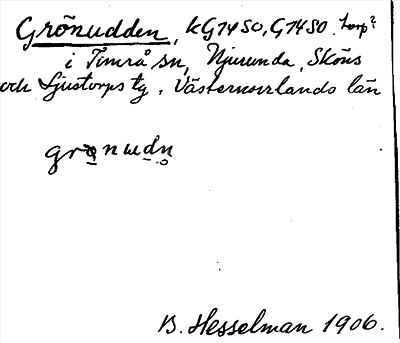 Grönudden, KG74SO, G74SO. torp?
i Timrå sn, Njurunda, Sköns
och Ljustorps tg, Västernorrlands län
grönudn
B. Hesselman 1906.